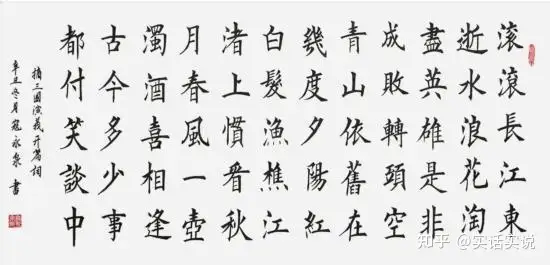 滾滾長江東
逝水浪花淘
盡英雄是非
成敗轉頭空
青山依舊在
幾度夕陽紅
白髮漁樵江
渚上慣看秋
月春風一壺
濁酒喜相逢
古今多少事
都付笑談中
摘三國演義開篇詞
辛丑冬月寇永泉書
知乎 @实话实说